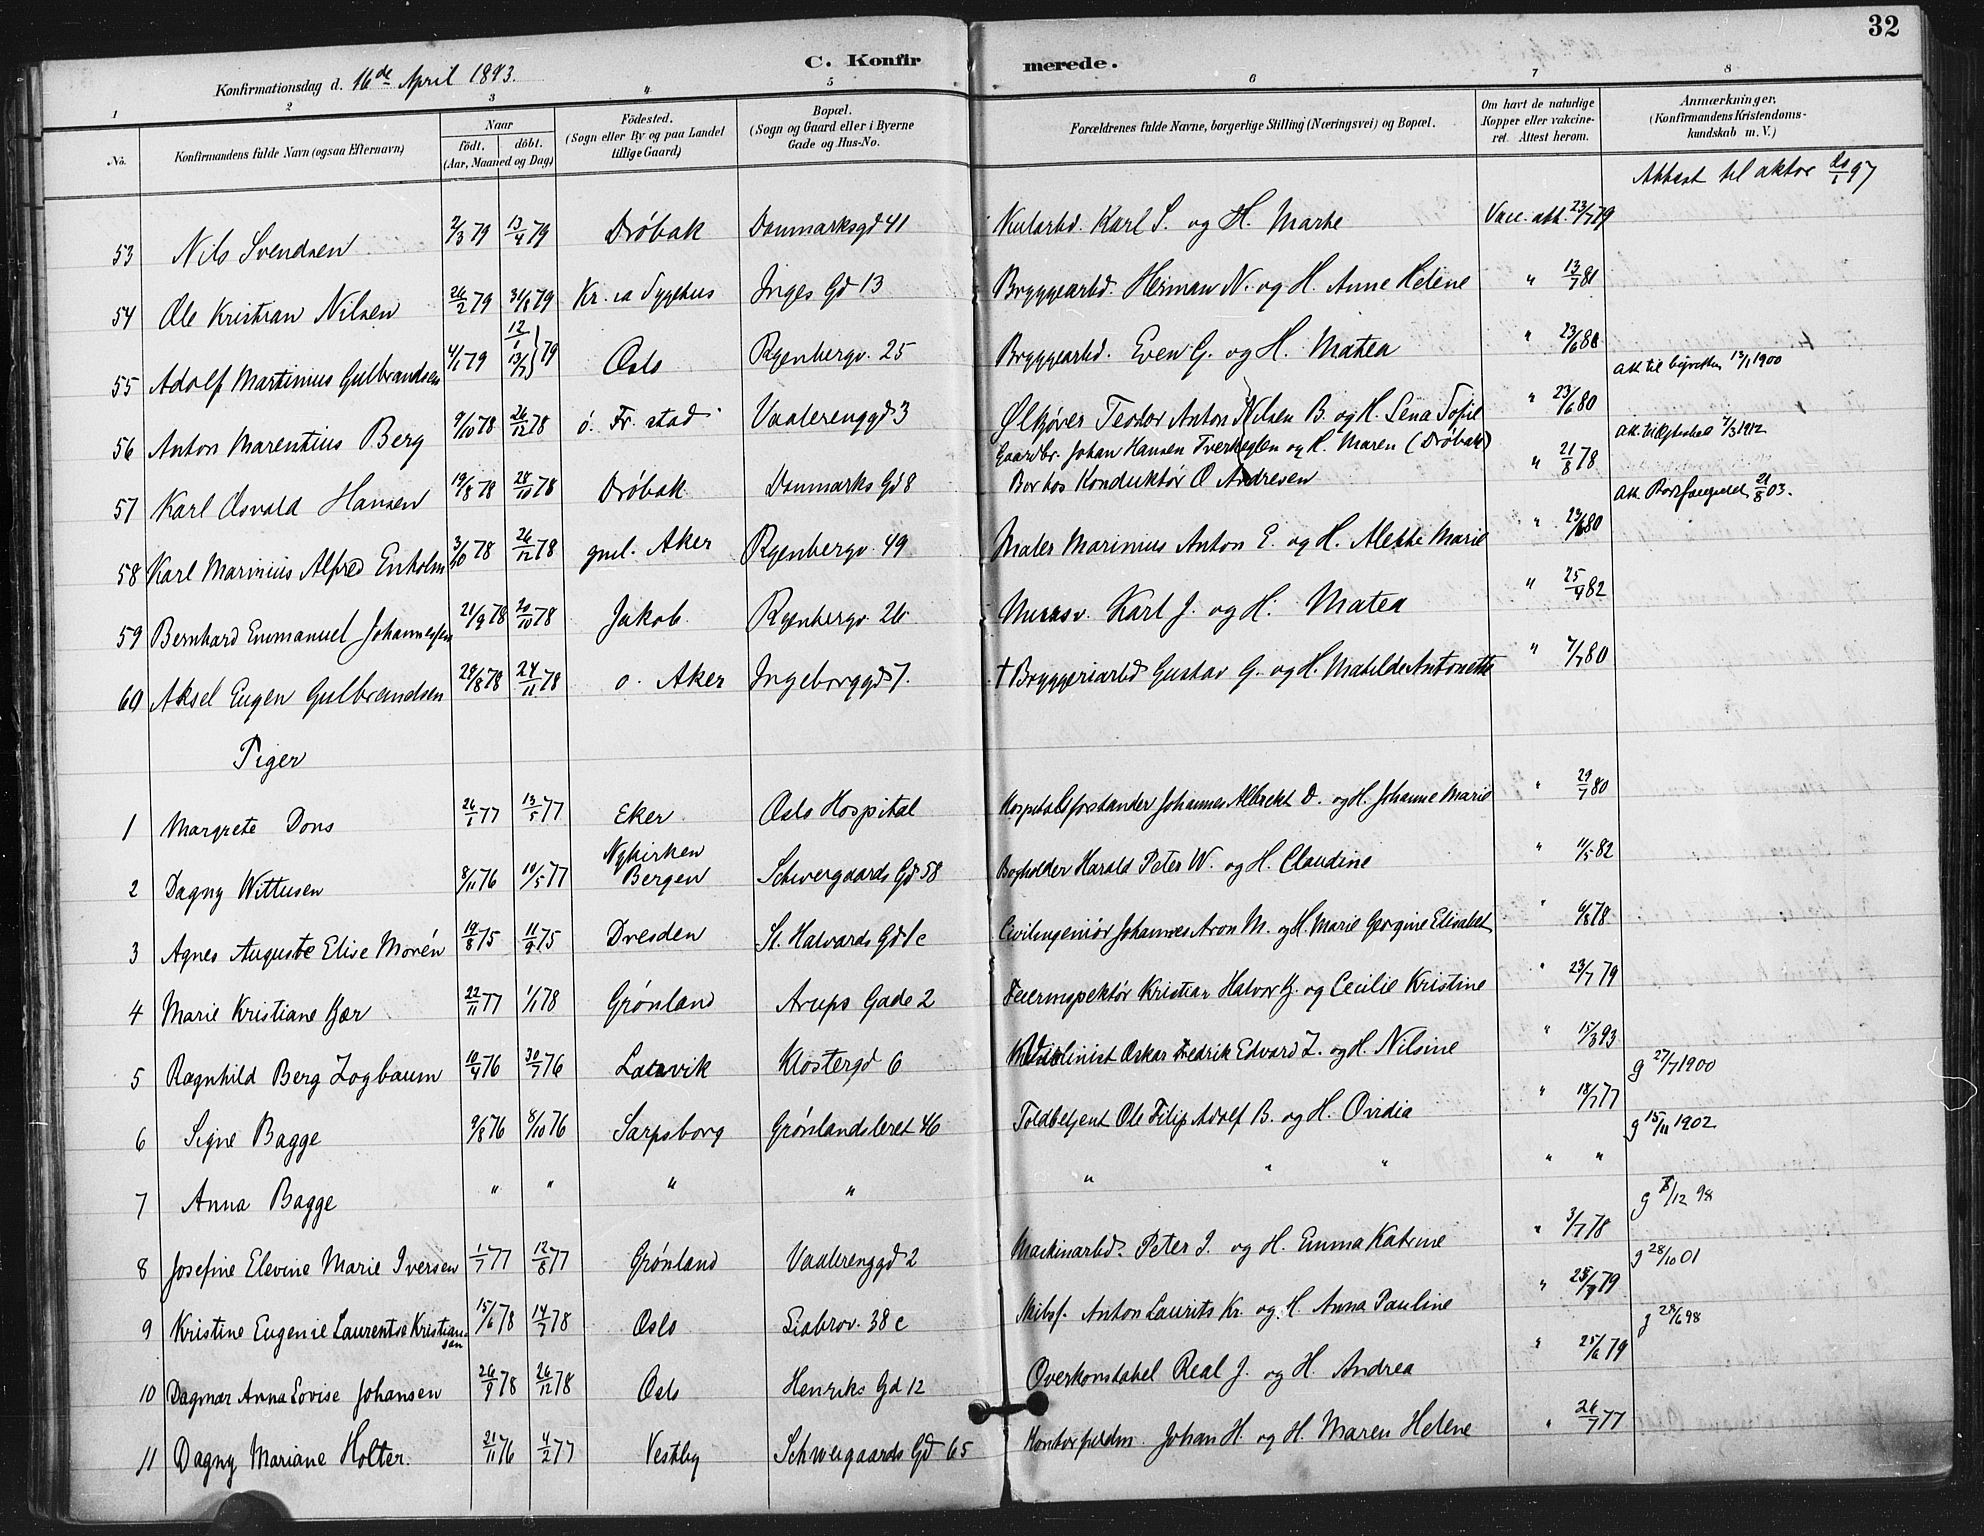 32
C. Konfir merede.
Konfirmationsdag d. 16de April 1893.
1 2 3 4 5 6 7 8
No.
Konfirmandens fulde Navn (ogsaa Efternavn)
Naar
födt. döbt.
(Aar, Maaned og Dag)
Födested.
(Sogn eller By og paa Landet
tillige Gaard)
Bopæl.
(Sogn og Gaard eller i Byerne
Gade og Hus-No.
Forældrenes fulde Navne, borgerlige Stilling (Næringsvei) og Bopæl.
Om havt de naturlige
Kopper eller vakcine-
ret. Attest herom.
Anmærkninger.
(Konfirmandens Kristendoms-
kundskab m. V.)
Attest til aktor 20/1 97
53 Nils Svendsen 2/3 79 13/4 79 Dröbak Danmarksgd 41 Karl S. og H. Marte Vacc. att. 23/7 79
54 Ole Kristian Nilsen 26/2 79 79 Kr.ia Sygehus Inges Gd 13 Bryggearbd. Herman N. og H. Anne Helene " 13/7 81
55 Adolf Martinius Gulbrandsen 4/1 79 79 Oslo Ryenbergv. 25 Bryggearbd. Even G. og H. Matea " 23/6 80 1900
56 Anton Marentius Berg 9/10 78 26/12 78 ö. Fr.stad Vaalerenggd 3 Ølkjører Teodor Anton Nilsen B. og H. Lena Sofie " 23/6 80
57 Karl Osvald Hansen 19/8 78 28/10 78 Dröbak Danmarks Gd 8 Gaardbr. Johan Hansen og H. Maren (Dröbak) " 21/8 78
Bor hos Konduktör O Andresen
58 Karl Marinius Alfred Enholm 3/10 78 26/12 78 gml. Aker Ryenbergv. 49 Maler Marinius Anton E. og H. Alette Marie " 23/6 80 21/8 03.
59 Bernhard Emmanuel Johannessen 21/9 78 20/10 78 Jakob Ryenbergv. 26 Karl J. og H. Matea " 25/4 82
60 Aksel Eugen Gulbrandsen 28/8 78 24/11 78 ö. Aker Ingeborggd 7. † Bryggeriarbd Gustav G. og H. Matilde Antonette " 7/7 80
Piger
1 Margrete Dons 26/1 77 13/5 77 Eker Oslo Hospital Hospitalsforstander Johannes Albrekt D. og H. Johanne Marie " 29/7 80
2 Dagny Wittusen 8/11 76 10/5 77 Nykirken Bergen Schweigaards Gd 58 Bogholder Harald Peter W. og H. Claudine " 11/5 82
3 Agnes Auguste Elise Morén 19/8 75 11/9 75 Dresden St. Halvards Gd 1c Civilingeniör Johannes Aron M. og H. Marie Georgine Elisabet " 6/8 78
4 Marie Kristiane Kjær 22/11 77 1/1 78 Grönland Arups Gade 2 Feierinspektör Kristian Halvor Kj. og Cecilie Kristine " 23/7 79
5 Ragnhild Berg Zogbaum 10/4 76 30/7 76 Larvik Klostergd 6 Oskar Fredrik Edvard Z. og H. Nilsine " 15/3 93 g 27/7 1900
6 Signe Bagge 9/8 76 8/10 76 Sarpsborg Grönlandsleret 46 Toldbetjent Ole Filip Adolf B. og H. Ovidia " 18/7 77 g 15/11 1902
7 Anna Bagge " " " " " " " " " g 8/12 98
8 Josefine Elevine Marie Iversen 1/7 77 12/8 77 Grönland Vaalerenggd 2 Maskinarbd. Peter I. og H. Emma Katrine " 3/7 78 g 28/10 01
9 Kristine Eugenie Laurentse Kristiansen 15/6 78 14/7 78 Oslo Liabrov. 38 c Skibsf. Anton Laurits Kr. og H. Anna Pauline " 25/9 79 g 28/6 98
10 Dagmar Anna Lovise Johansen 26/9 78 26/12 78 Oslo Henriks Gd 12 Overkonstabel Real J. og H. Andrea " 25/6 79
11 Dagny Mariane Holter. 21/11 76 4/2 77 Vestby Schweigaards Gd 65 Kontorfuldm. Johan H. og H. Maren Helene " 26/7 77